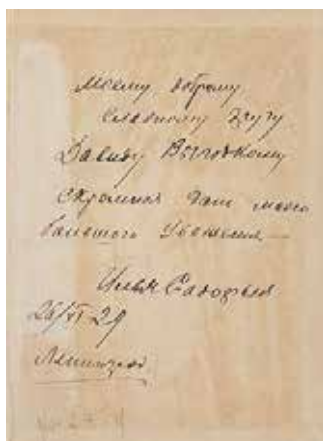 Моему доброму,
славному другу
Давиду Выгодскому
скромная дань моего
большого уважения —
Илья Садофьев
26/VI 29
Ленинград